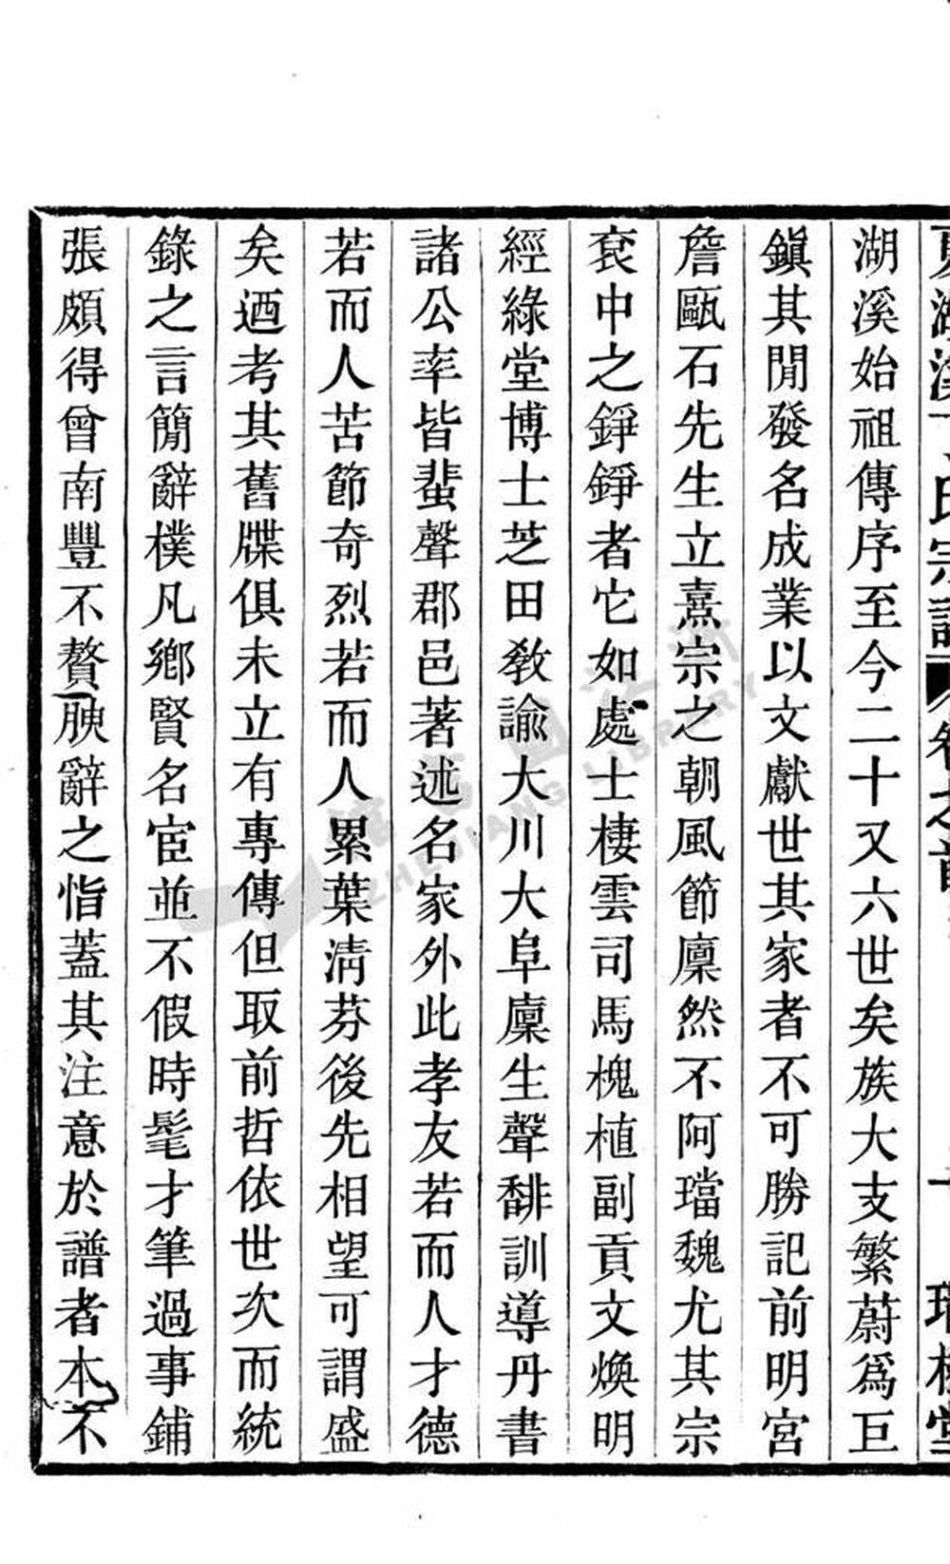 湖溪始祖傳序至今二十又六世矣族大支繁蔚爲巨
鎭其閒發名成業以文獻世其家者不可勝記前明宮
詹甌石先生立熹宗之朝風節凜然不阿璫魏尤其宗
袞中之錚錚者它如處士棲雲司馬槐植副貢文煥明
經綠堂博士芝田敎諭大川大阜廩生聲馡訓導丹書
諸公率皆蜚聲郡邑著述名家外此孝友若而人才德
若而人苦節奇烈若而人累葉淸芬後先相望可謂盛
矣迺考其舊牒俱未立有專傳但取前哲依世次而統
錄之言簡辭樸凡鄉賢名宦並不假時髦才筆過事鋪
張頗得曾南豐不贅腴辭之恉蓋其注意於譜者本不
ZHEJIANG LIBRARY